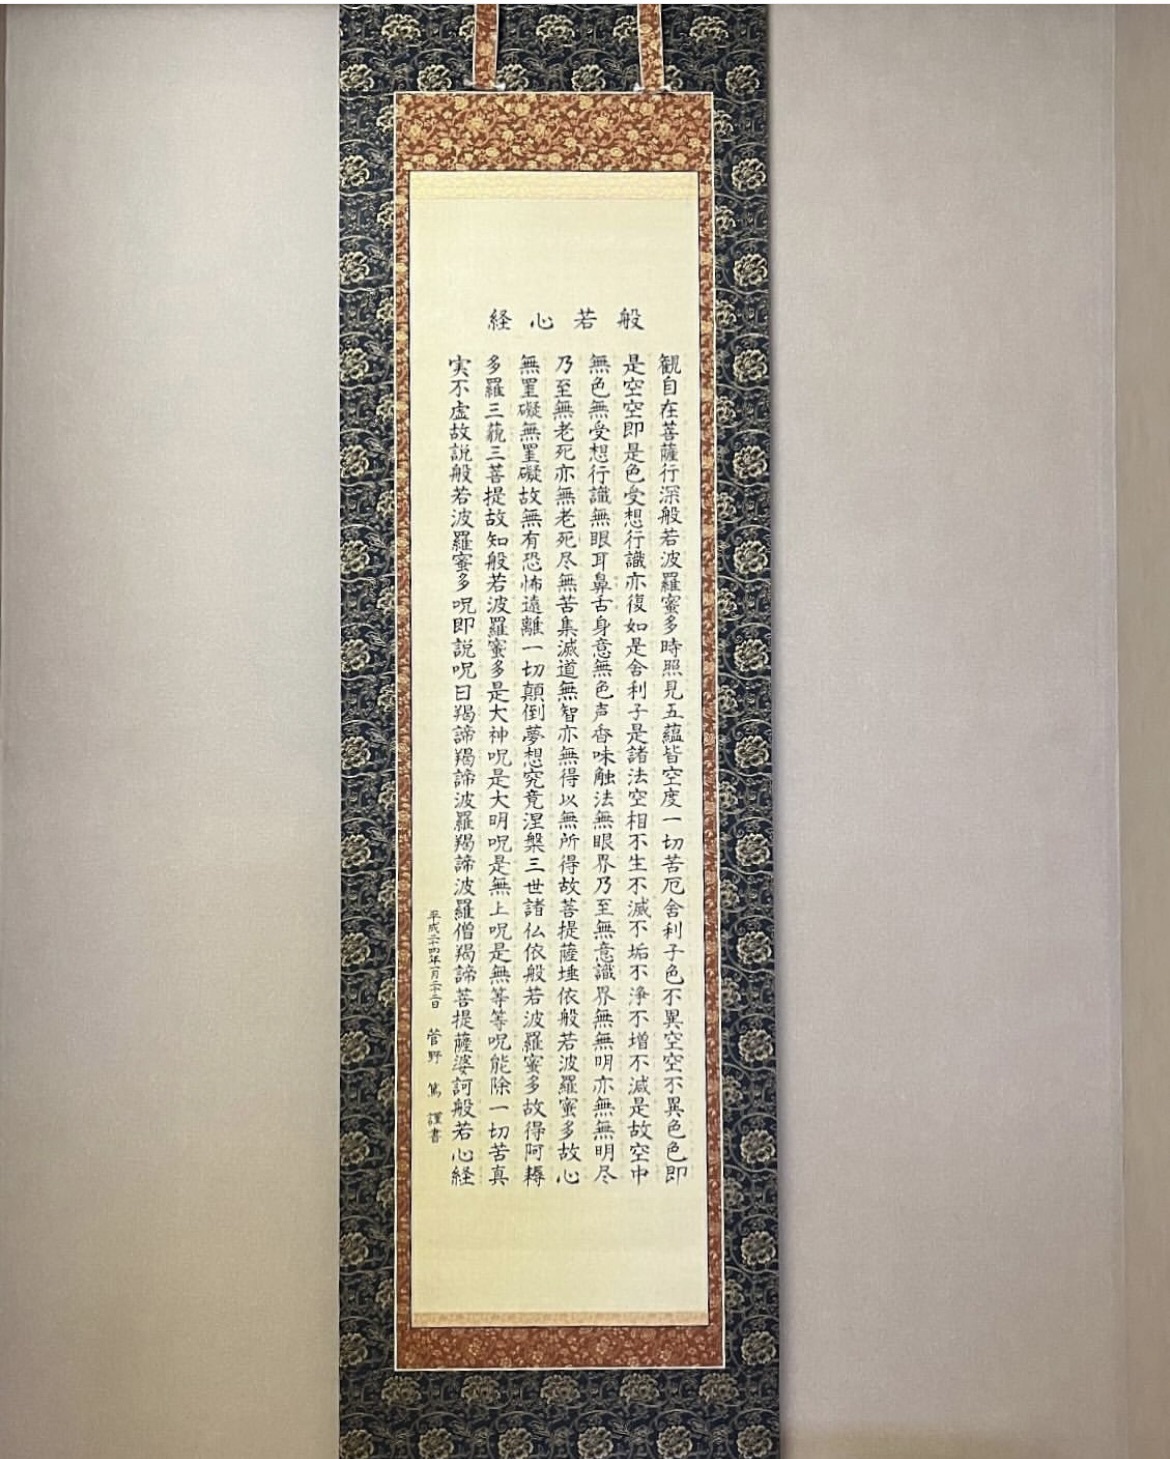 般若心経
観自在菩薩行深般若波羅蜜多時照見五蘊皆空度一切苦厄舎利子色不異空空不異色色即
是空空即是色受想行識亦復如是舎利子是諸法空相不生不滅不垢不浄不増不減是故空中
無色無受想行識無眼耳鼻舌身意無色声香味触法無眼界乃至無意識界無無明亦無無明尽
乃至無老死亦無老死尽無苦集滅道無智亦無得以無所得故菩提薩埵依般若波羅蜜多故心
無罣礙無罣礙故無有恐怖遠離一切顛倒夢想究竟涅槃三世諸仏依般若波羅蜜多故得阿耨
多羅三藐三菩提故知般若波羅蜜多是大神呪是大明呪是無上呪是無等等呪能除一切苦真
実不虚故説般若波羅蜜多呪即説呪曰羯諦羯諦波羅羯諦波羅僧羯諦菩提薩婆訶般若心経
平成二十四年一月 菅野 篤 謹書